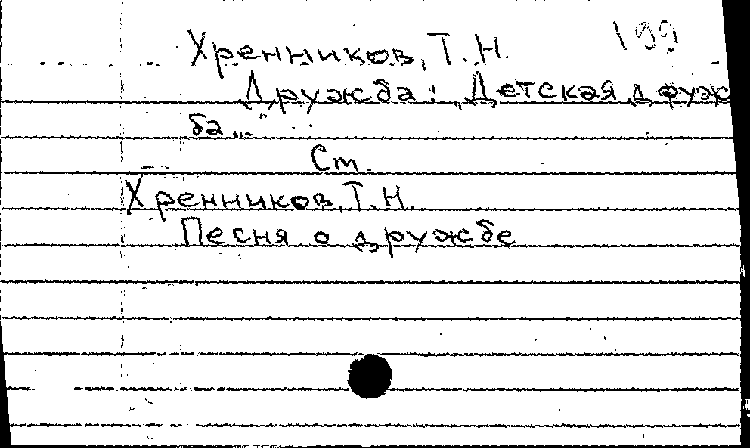 Хренников, Т. Н. 199
Дружба: „Детская друж
ба..."
Ст.
Хренников, Т. Н.
Песня о дружбе